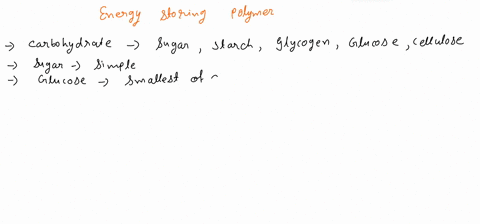 Energy storing polymer
-> carbohydrate -> Sugar, starch, glycogen, Glucose, cellulose
-> Sugar -> Simple
-> Glucose -> Smallest of